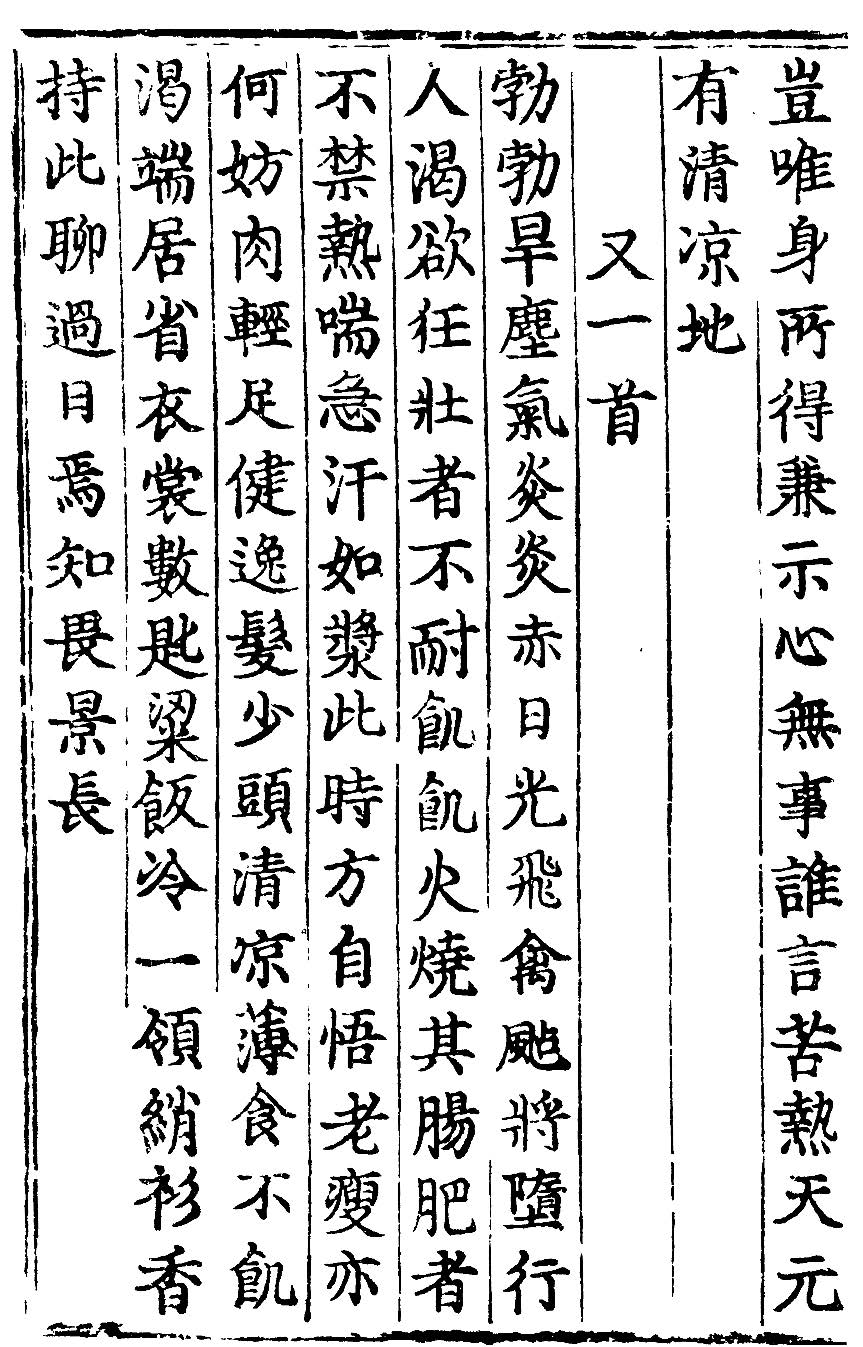 豈唯身所得兼示心無事誰言苦熱天元
有清凉地
又一首
勃勃旱塵氣炎炎赤日光飛禽颭將墮行
人渴欲狂壯者不耐飢飢火燒其腸肥者
不禁熱喘急汗如漿此時方自悟老瘦亦
何妨肉輕足健逸髮少頭清凉薄食不飢
渴端居省衣裳數匙粱飯冷一領綃衫香
持此聊過日焉知畏景長